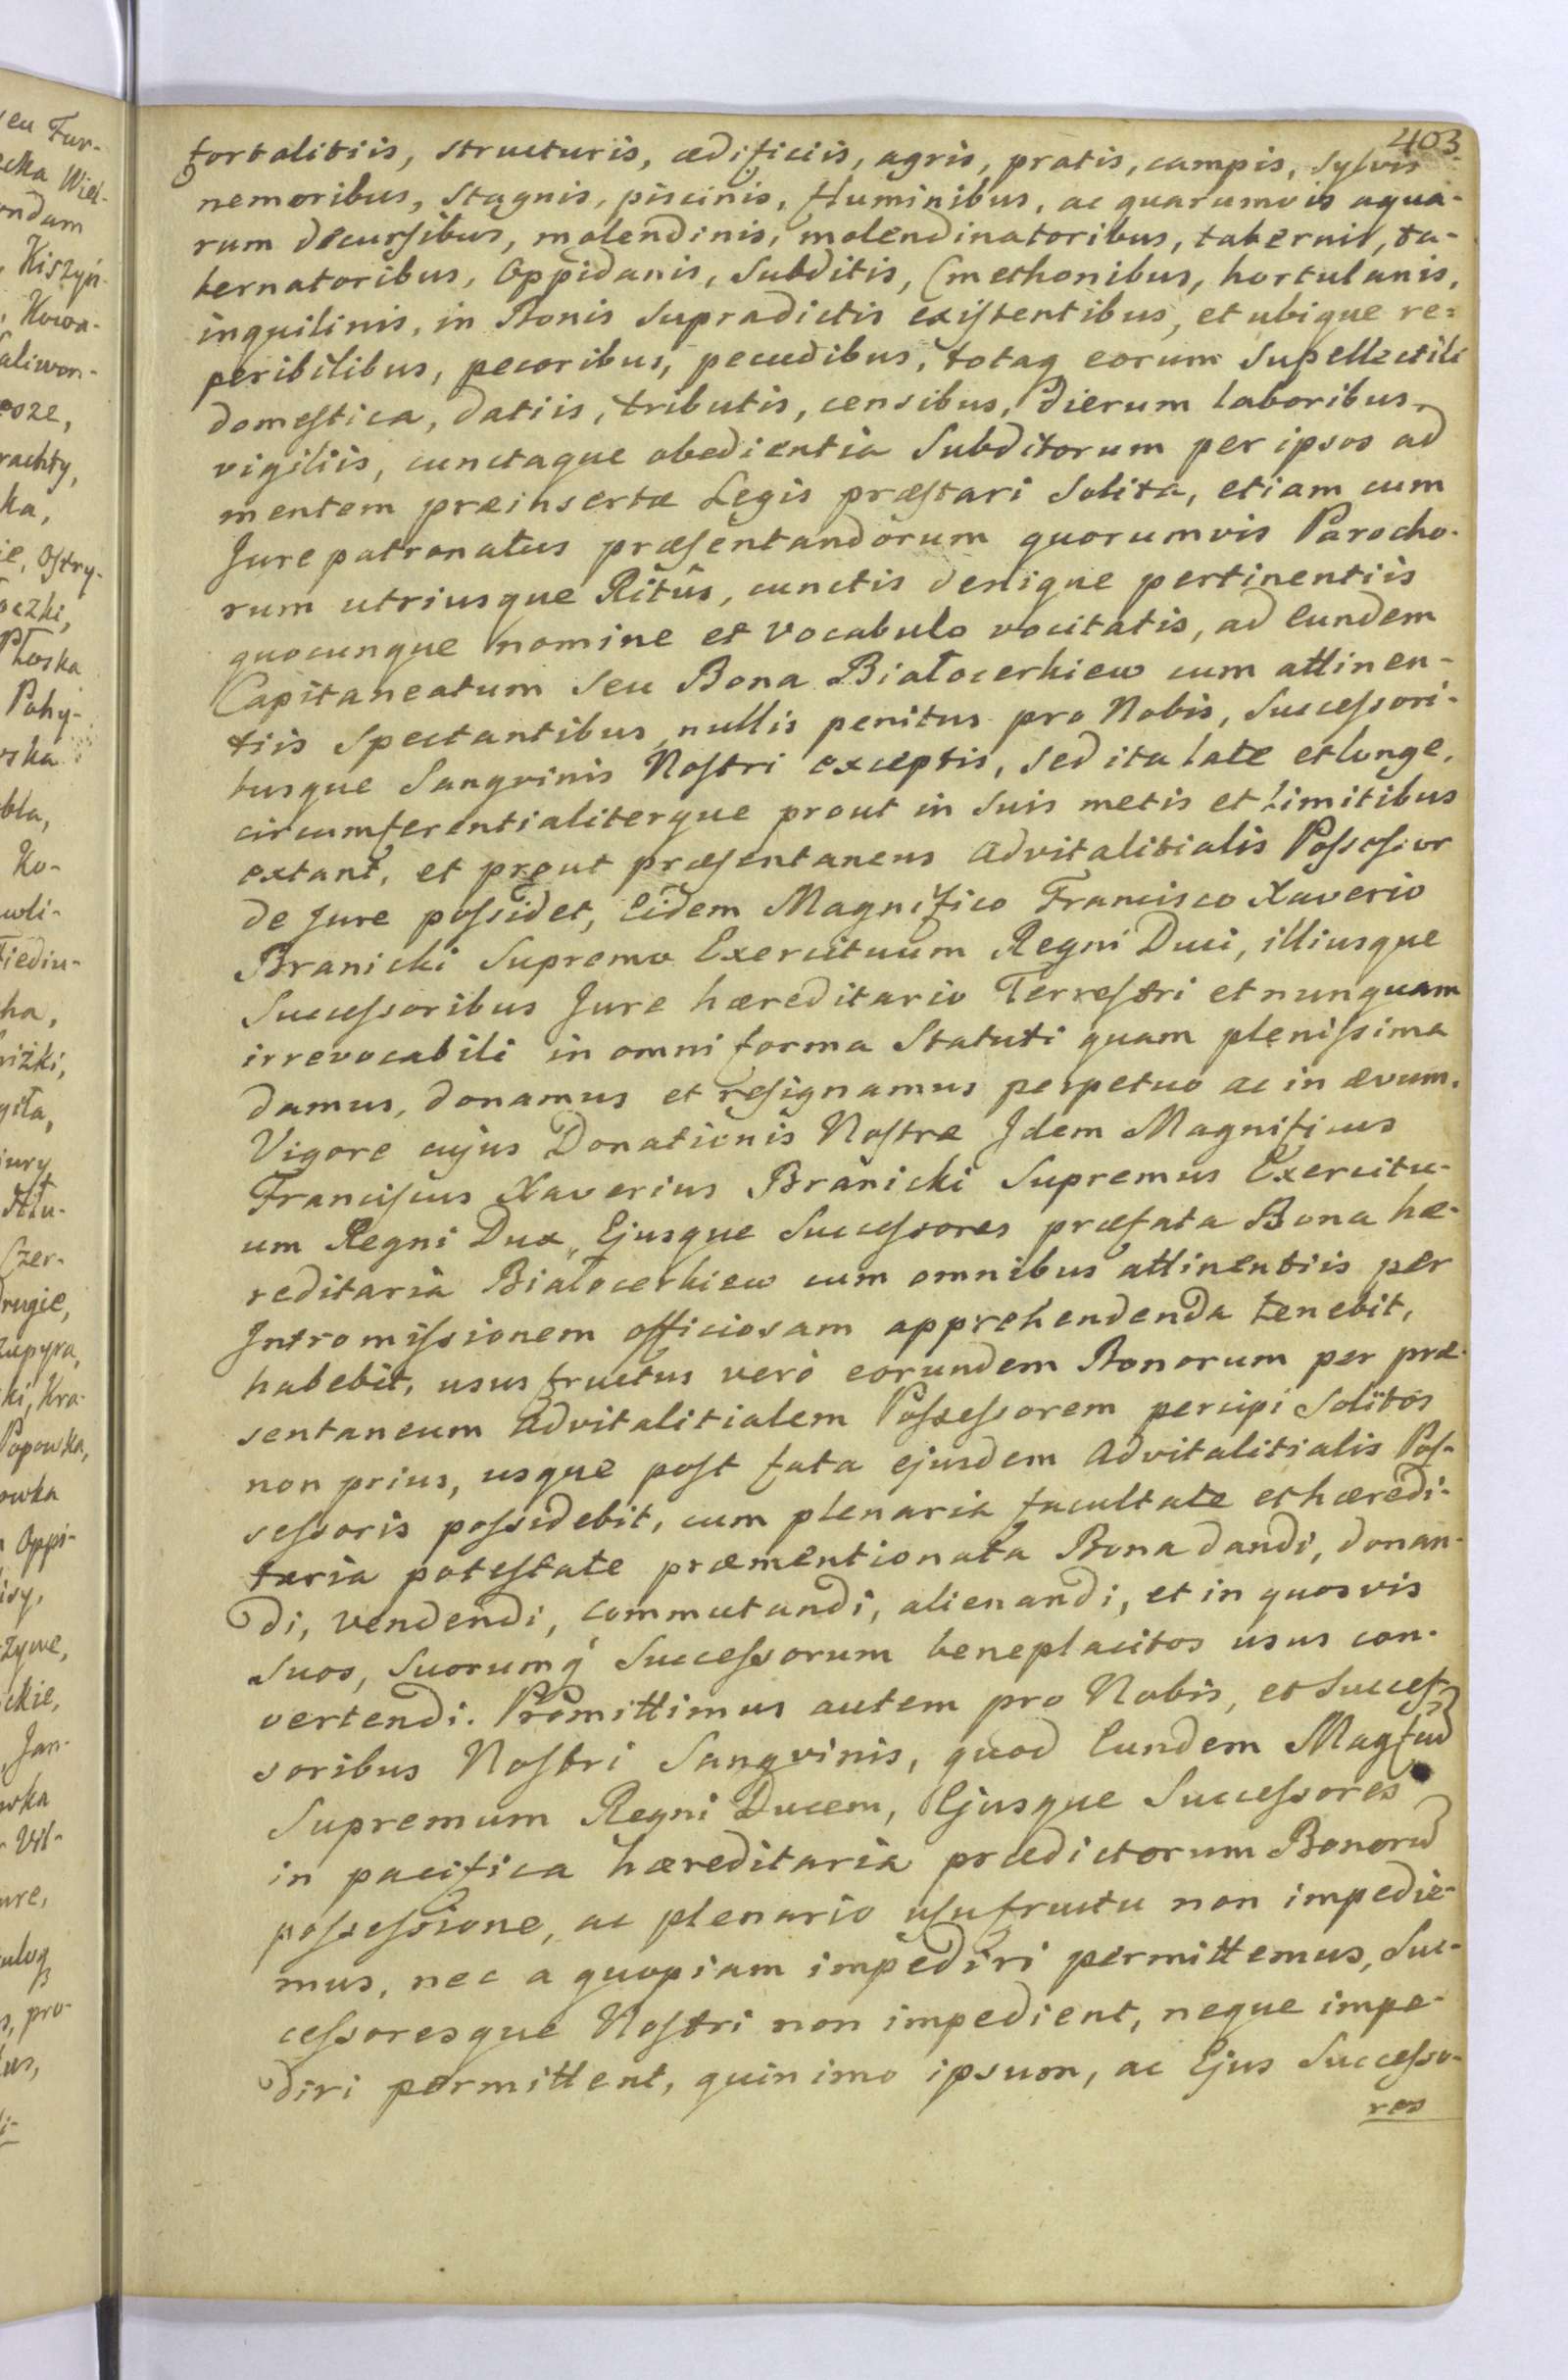 403
fortalitiis, structuris, ædificiis, agris, pratis, campis, Sylvis
nemoribus, Stagnis, piscinis, fluminibus, ac quarumvis aqua-
rum decursibus, molendinis, molendinatoribus, tabernis, ta-
bernatoribus, Oppidanis, Subditis, Cmethonibus, hortulanis,
inquilinis, in Bonis Supradictis existentibus, et ubique re=
peribilibus, pecoribus, pecudibus, totaq eorum Supellectili
domestica, datiis, tributis, censibus, dierum laboribus
vigiliis, cunctaque obedientia Subditorum per ipsos ad
mentem præinsertæ Legis præstari Solita, etiam cum
Jure patronatus præsentandorum quorumvis Parocho-
rum utriusque Ritûs, cunctis denique pertinentiis
quocunque nomine et vocabulo vocitatis, ad eundem
Capitaneatum Seu Bona Białocerkiew cum attinen-
tiis Spectantibus, nullis penitus pro Nobis, Successori-
busque Sangvinis Nostri exceptis, Sed ita late et longe,
circumferentialiterque prout in Suis metis et Limitibus
extant, et prout præsentaneus Advitalitialis Possessor
de Jure possidet, Eidem Magnifico Francisco Xaverio
Branicki Supremo Exercituum Regni Duci, illiusque
Successoribus Jure hæreditario Terrestri et nunquam
irrevocabili in omni forma Statuti quam plenissima
damus, donamus et resignamus perpetuo ac in ævum.
Vigore cujus Donationis Nostræ Idem Magnificus
Franciscus Xaverius Branicki Supremus Exercitu-
um Regni Dux, Ejusque Successores præfata Bona hæ-
reditaria Białocerkiew cum omnibus attinentiis per
Intromissionem officiosam apprehendenda tenebit,
habebit, usus fructus verò eorundem Bonorum per præ-
sentaneum Advitalitialem Possessorem percipi Solitos
non prius, usque post fata ejusdem Advitalitialis Pos-
sessoris possidebit, cum plenaria facultate et hæredi-
taria potestate præmentionata Bona dandi, donan-
di, vendendi, commutandi, alienandi, et in quosvis
Suos, Suorumq Successorum beneplacitos usus con-
vertendi. Promittimus autem pro Nobis, et Succes-
soribus Nostri Sangvinis, quod Eundem Magfcū
Supremum Regni Ducem, Ejusque Successores
in pacifica hæreditaria prædictorum Bonorū
possessione, ac plenario usufructu non impedie-
mus, nec a quopiam impediri permittemus, Suc-
cessoresque Nostri non impedient, neque impe-
diri permittent, quinimo ipsum, ac Ejus Successo-
res